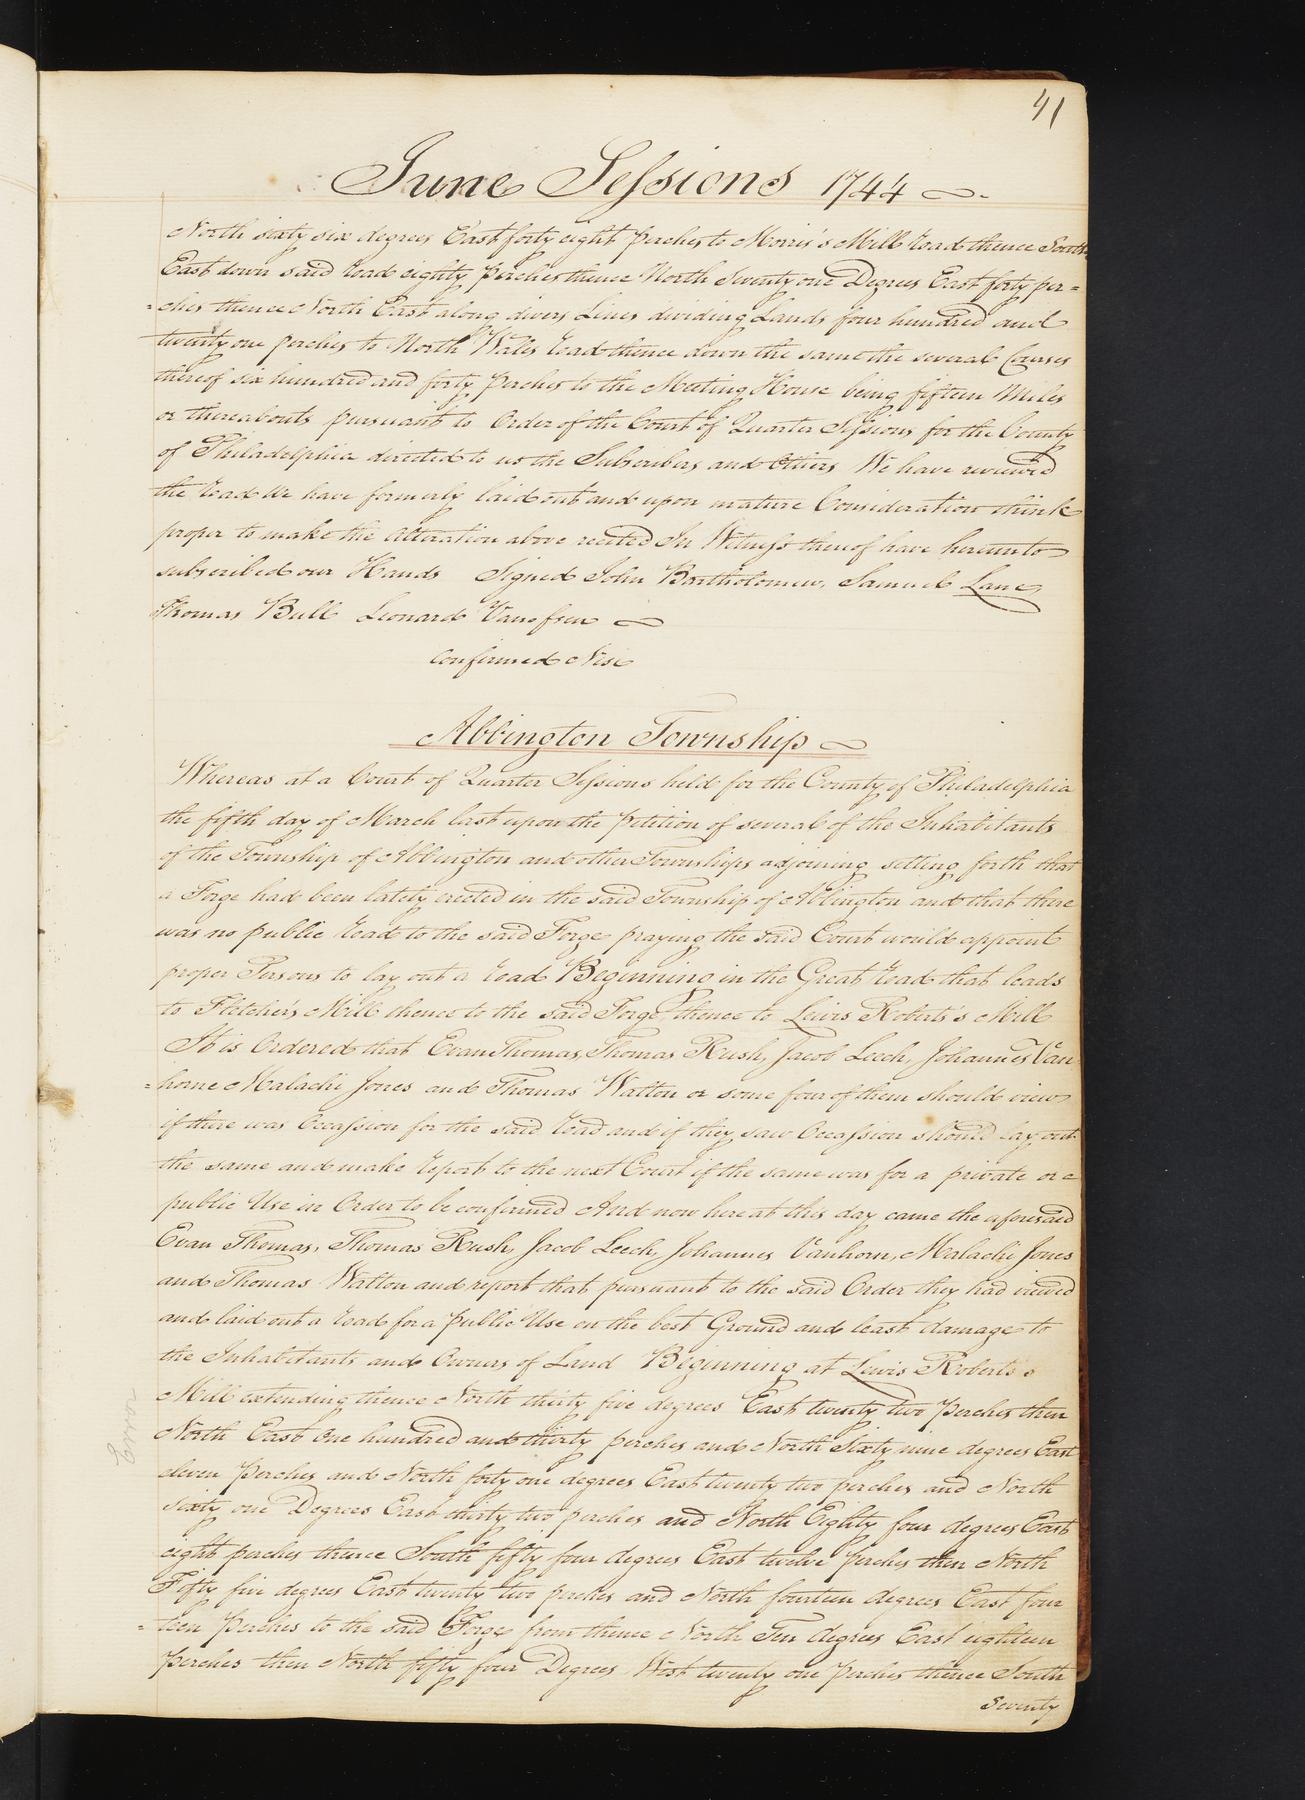 41
June Sessions 1744
North sixty six degrees East forty eight perches to Morris's Mill Road thence South
East down said Road eighty perches thence North Seventy one Degrees East forty per=
=ches thence North East along divers Lines dividing Lands four hundred and
twenty one perches to North Wales Road thence down the same the several Courses
thereof six hundred and forty perches to the Meeting House being fifteen Miles
or thereabouts pursuant to Order of the Court of Quarter Sessions for the County
of Philadelphia directed to us the Subscribers and Others We have reviewed
the Road We have formerly laid out and upon mature Consideration think
proper to make the Alteration above recited In Witness thereof have hereunto
subscribed our Hands Signed John Bartholomew, Samuel Lane
Thomas Bull Leonard Vanofsen
Confirmed Nisi
Abbington Township
Whereas at a Court of Quarter Sessions held for the County of Philadelphia
the fifth day of March last upon the petition of several of the Inhabitants
of the Township of Abbington and other Townships adjoining setting forth that
a Forge had been lately erected in the said Township of Abbington and that there
was no public Road to the said Forge praying the said Court would appoint
proper Persons to lay out a Road Beginning in the Great Road that leads
to Fletcher's Mill thence to the said Forge thence to Lewis Roberts's Mill
It is Ordered that Evan Thomas, Thomas Rush, Jacob Leech, Johannes Van
=horne Malachi Jones and Thomas Watton or some four of them should view
if there was Occassion for the said Road and if they saw Occassion should lay out
the same and make Report to the next Court if the same was for a private or
public Use in Order to be confirmed And now here at this day came the aforesaid
Evan Thomas, Thomas Rush, Jacob Leech, Johannes Vanhorn, Malachi Jones
and Thomas Watton and report that pursuant to the said Order they had viewed
and laid out a Road for a public Use on the best Ground and least damage to
the Inhabitants and Owners of Land Beginning at Lewis Roberts's
Mill extending thence North thirty five degrees East twenty two perches then
North East One hundred and thirty perches and North Sixty nine degrees East
eleven perches and North forty one degrees East twenty two perches and North
sixty one Degrees East thirty two perches and North Eighty four degrees East
eight perches thence South fifty four degrees East twelve perches then North
Fifty five degrees East twenty two perches and North fourteen degrees East four
=teen perches to the said Forge from thence North Ten degrees East eighteen
perches then North fifty four Degrees West twenty one perches thence South
Seventy
Error